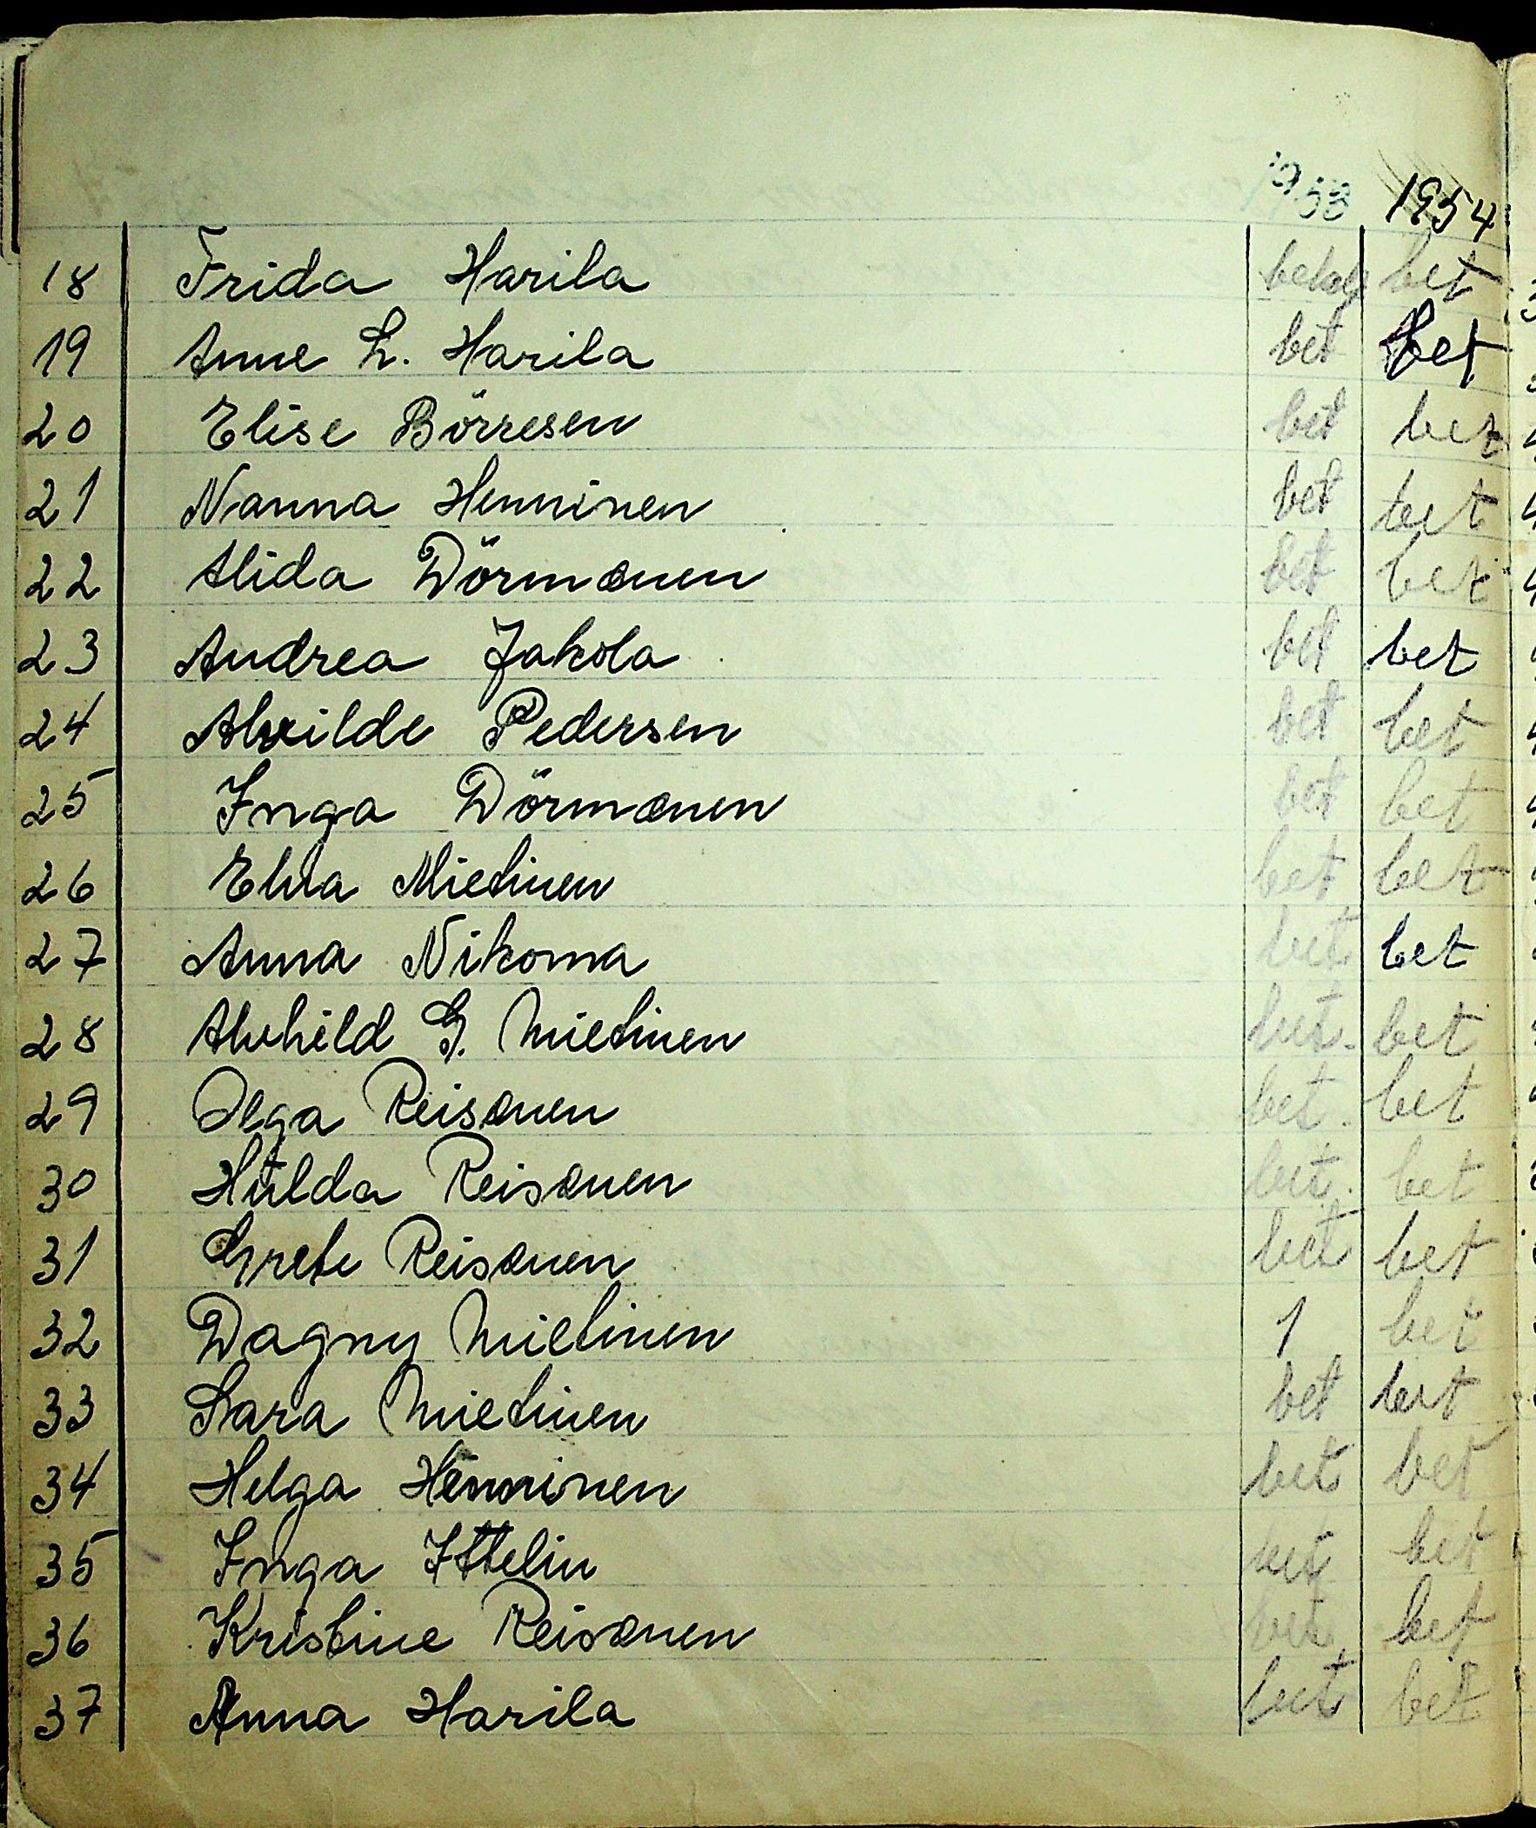 1953 1954
18 Frida Harila betalt bet
19 Anne L. Harila bet bet
20 Elise Börresen bet bet
21 Nanna Henninen bet bet
22 Alida Dörmænen bet bet
23 Andrea Jakola bet bet
24 Alvilde Pedersen bet bet
25 Inga Dörmænen bet bet
26 Elva Mietinen bet bet
27 Anna Nikoma bet bet
28 Alvhild G. Mietinen bet. bet
29 Olga Reisænen bet. bet
30 Hulda Reisænen bet. bet
31 Grete Reisænen bet bet
32 Dagny Mietinen 1 bet
33 Sara Mietinen bet bet
34 Helga Henninen bet bet
35 Inga Ittelin bet bet
36 Kristine Reisænen bet bet
37 Anna Harila bet bet